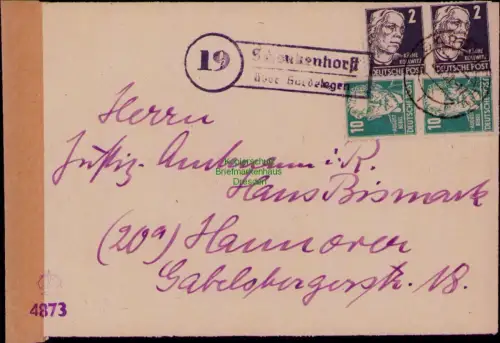 2
2
KÄTHE KOLLWITZ
KÄTHE KOLLWITZ
DEUTSCHE POST
DEUTSCHE POST
19
Schenkenhorst
über Gardelegen
10
DEUTSCHE POST
10
DEUTSCHE POST
Herrn
Justiz-Amtmann i. R.
Briefmarkenhaus
Dresden
Hans Bismark
(20a) Hannover
Gabelsbergerstr. 18.
4873